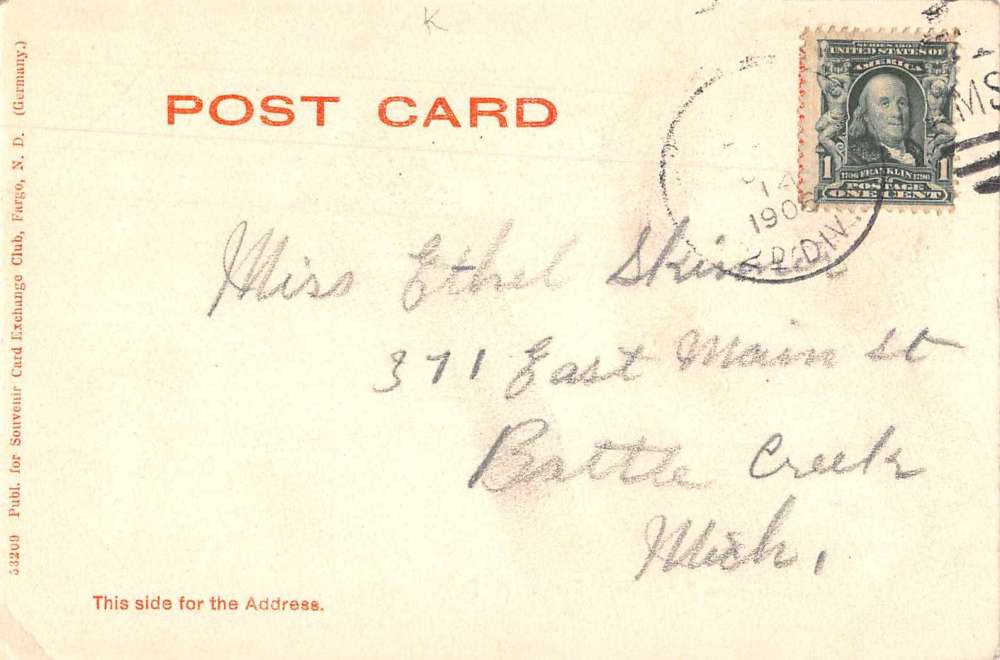 K
POST CARD
SERIES 1902
UNITED STATES OF
AMERICA
1 1706 FRANKLIN 1790 1
POSTAGE
ONE CENT
14
1906
DIV.
Miss Ethel
371 East Main St
Battle Creek
Mich.
This side for the Address.
53209 Publ. for Souvenir Card Exchange Club, Fargo, N. D. (Germany.)